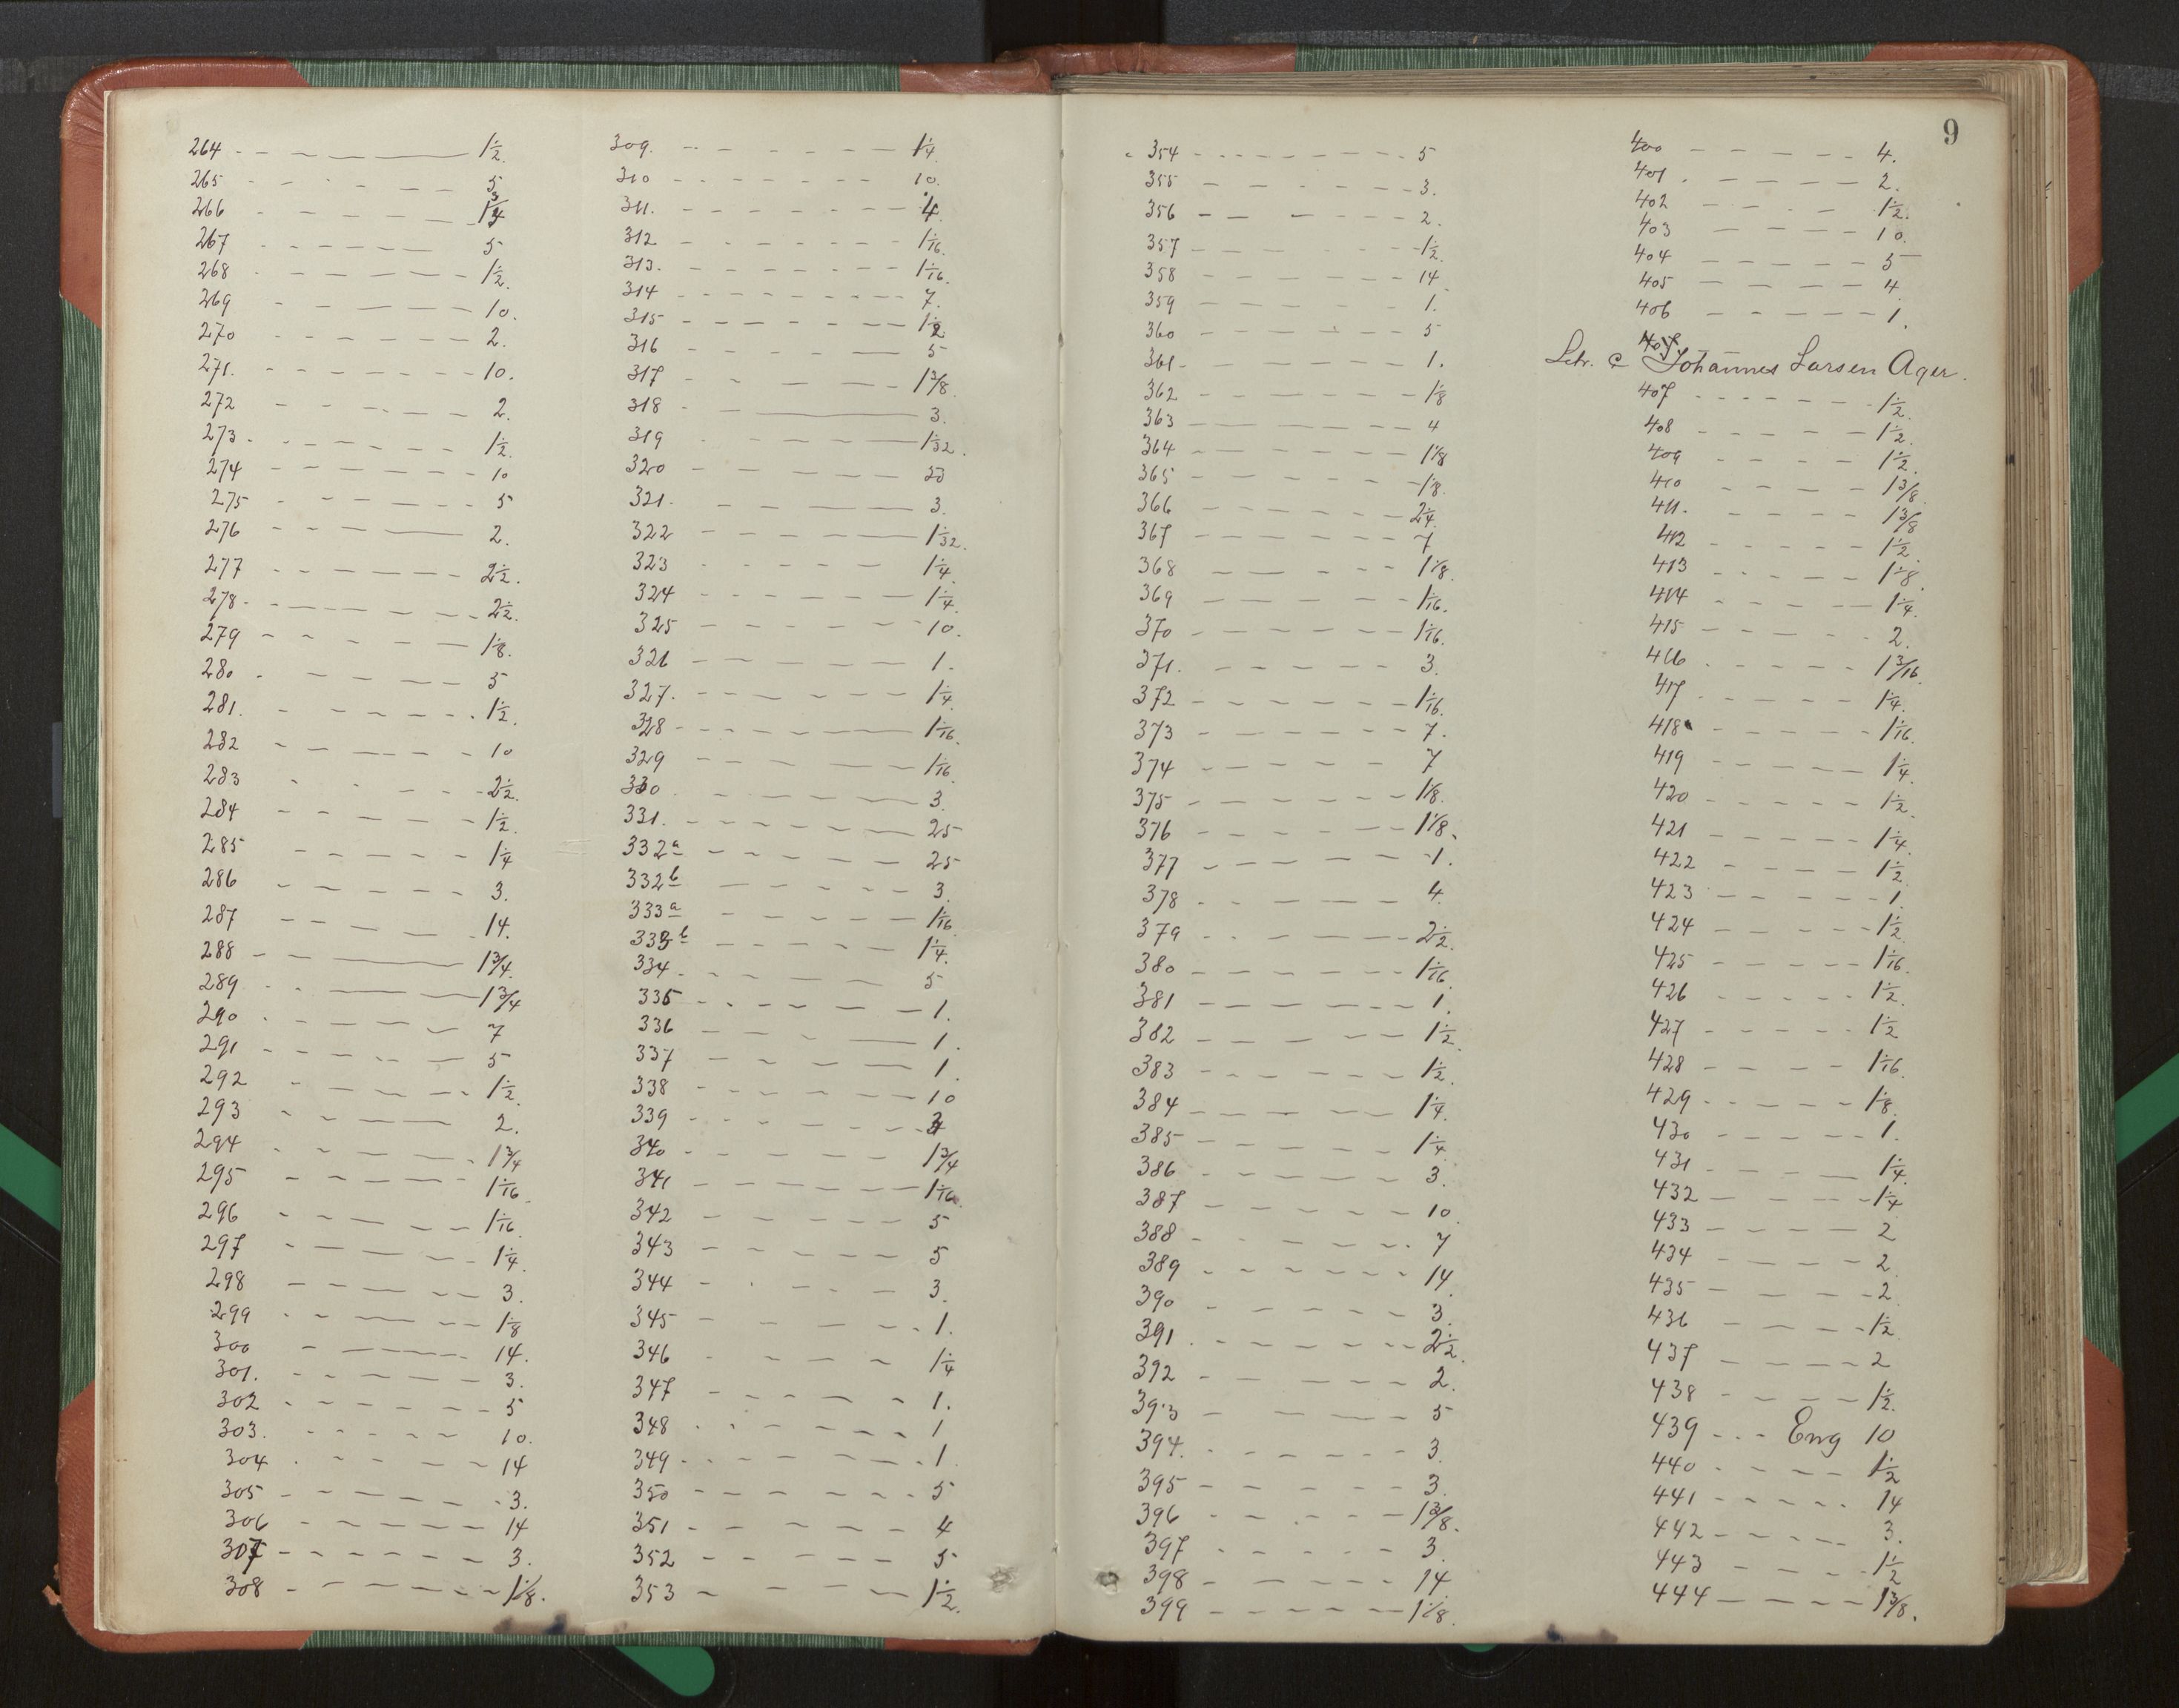 264 - - - - 1 1/2.
265 - - - - 5
266 - - - - 1 3/4
267 - - - - 5
268 - - - - 1 1/2.
269 - - - - 10.
270 - - - - 2.
271. - - - - 10.
272 - - - - 2.
273 - - - - 1 1/2.
274 - - - - 10
275 - - - - 5
276 - - - - 2.
277 - - - - 2 1/2.
278 - - - - 2 1/2.
279 - - - - 1 1/8.
280 - - - - 5
281. - - - - 1 1/2.
282 - - - - 10
283 - - - - 2 1/2.
284 - - - - 1 1/2.
285 - - - - 1 1/4
286 - - - - 3.
287 - - - - 14.
288 - - - - 1 3/4.
289 - - - - 1 3/4
290 - - - - 7
291 - - - - 5
292 - - - - 1 1/2.
293 - - - - 2.
294 - - - - 1 3/4
295 - - - - 1 1/16.
296 - - - - 1 1/16.
297 - - - - 1 1/4.
298 - - - - 3.
299 - - - - 1 1/8
300 - - - - 14.
301. - - - - 3.
302 - - - - 5
303. - - - - 10.
304 - - - - 14
305 - - - - 3.
306 - - - - 14
307 - - - - 3.
308 - - - - 1 1/8.
309. - - - - 1 1/4.
310 - - - - 10.
311. - - - - 4.
312 - - - - 1 1/16.
313. - - - - 1 1/16.
314 - - - - 7.
315 - - - - 1 1/2.
316 - - - - 5
317 - - - - 1 3/8.
318 - - - - 3.
319 - - - - 1 1/32.
320 - - - -
321. - - - - 3.
322 - - - - 1 1/32.
323 - - - - 1 1/4.
324 - - - - 1 1/4.
325 - - - - 10.
326 - - - - 1.
327. - - - - 1 1/4.
328 - - - - 1 1/16.
329 - - - - 1 1/16.
330 - - - - 3.
331. - - - - 25
332a - - - - 25
332b - - - - 3.
333a - - - - 1 1/16.
333b - - - - 1 1/4.
334 - - - - 5
335 - - - - 1.
336 - - - - 1.
337 - - - - 1.
338 - - - - 10
339 - - - -
340 - - - - 1 3/4
341 - - - - 1 1/16.
342 - - - - 5
343 - - - - 5
344 - - - - 3.
345 - - - - 1.
346 - - - - 1 1/4
347 - - - - 1.
348 - - - - 1
349 - - - - 1.
350 - - - - 5
351 - - - - 4
352 - - - - 5
353 - - - - 1 1/2.
9
354 - - - - 5
355 - - - - 3.
356 - - - - 2.
357 - - - - 1 1/2.
358 - - - - 14.
359 - - - - 1.
360 - - - - 5
361 - - - - 1.
362 - - - - 1 1/8
363 - - - - 4
364 - - - - 1 1/8
365 - - - - 1 1/8.
366 - - - - 2 1/4.
367 - - - - 7
368 - - - - 1 1/8.
369 - - - - 1 1/16.
370 - - - - 1 1/16.
371. - - - - 3.
372 - - - - 1 1/16.
373 - - - - 7.
374 - - - - 7
375 - - - - 1 1/8.
376 - - - - 1 1/8.
377 - - - - 1.
378 - - - - 4.
379 - - - - 2 1/2.
380 - - - - 1 1/16.
381 - - - - 1.
382 - - - - 1 1/2.
383 - - - - 1 1/2.
384 - - - - 1 1/4.
385 - - - - 1 1/4
386 - - - - 3.
387 - - - - 10.
388 - - - - 7
389 - - - - 14.
390 - - - - 3.
391 - - - - 2 1/2.
392 - - - - 2.
393 - - - - 5
394. - - - - 3.
395 - - - - 3.
396 - - - - 1 3/8.
397 - - - - 3.
398 - - - - 14.
399 - - - - 1 1/8.
400 - - - - 4.
401 - - - - 2.
402 - - - - 1 1/2.
403 - - - - 10.
404 - - - - 5
405 - - - - 4.
406 - - - - 1.
407.
Litr. C Johannes Larsen Ager.
407 - - - - 1 1/2.
408 - - - - 1 1/2.
409 - - - - 1 1/2.
410 - - - - 1 3/8.
411. - - - - 1 3/8
412 - - - - 1 1/2.
413 - - - - 1 1/8.
414 - - - - 1 1/4.
415 - - - - 2.
416 - - - - 1 3/16.
417 - - - - 1 1/4.
418 - - - - 1 1/16.
419 - - - - 1 1/4.
420 - - - - 1 1/2.
421 - - - - 1 1/4.
422 - - - - 1 1/2
423 - - - - 1.
424 - - - - 1 1/2.
425 - - - - 1 1/16.
426 - - - - 1 1/2.
427 - - - - 1 1/2
428 - - - - 1 1/16.
429 - - - - 1 1/8.
430 - - - - 1.
431 - - - - 1 1/4.
432 - - - - 1 1/4
433 - - - - 2
434 - - - - 2.
435 - - - - 2
436 - - - - 1 1/2.
437 - - - - 2
438 - - - - 1 1/2.
439 - - - Eng 10
440 - - - - 1 1/2
441 - - - - 14
442 - - - - 3.
443 - - - - 1 1/2
444 - - - - 1 3/8.